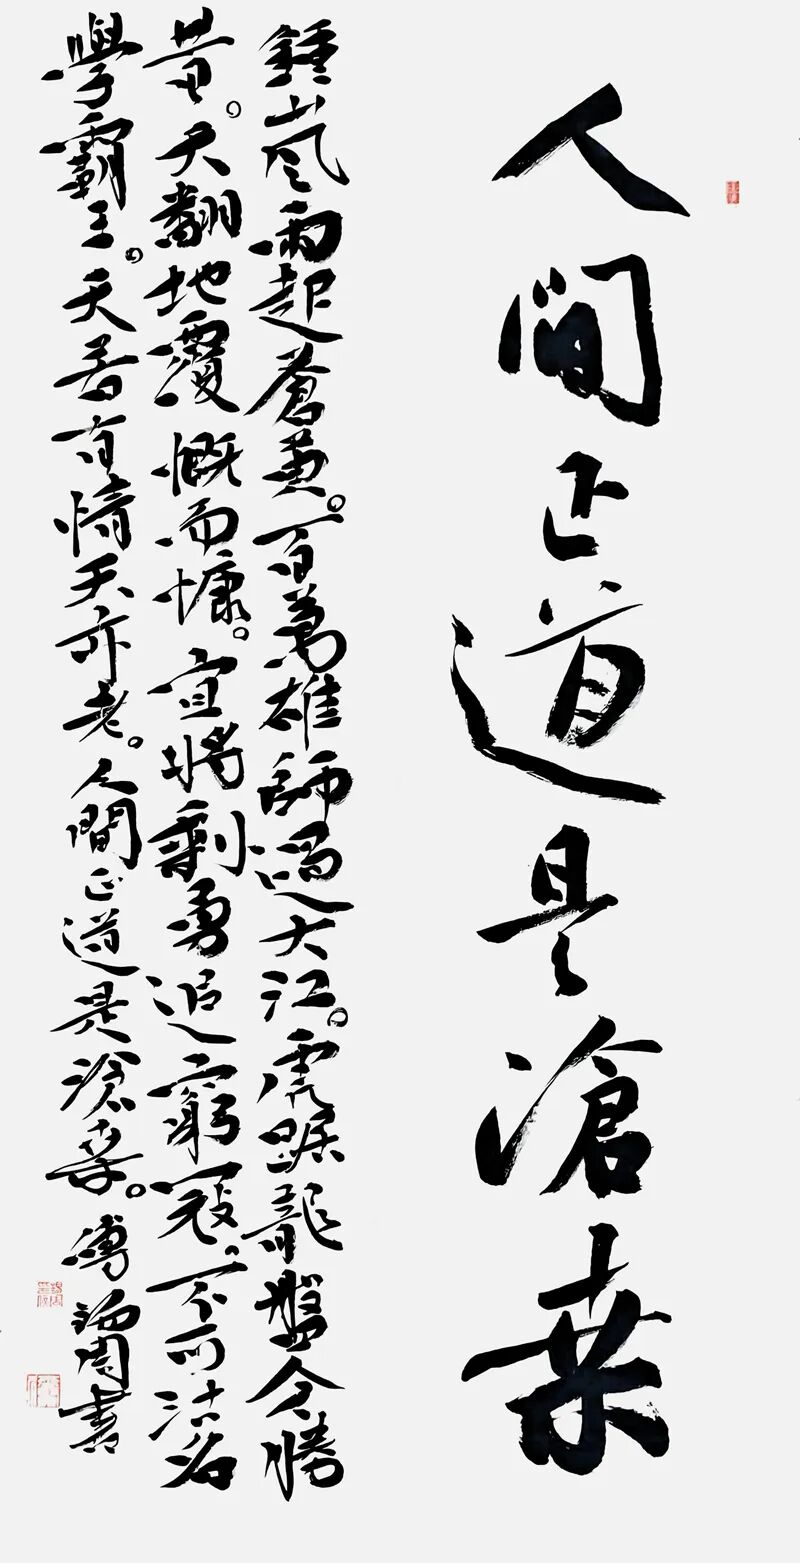 人間正道是滄桑
鍾山風雨起蒼黄。百萬雄師過大江。虎踞龍盤今勝
昔。天翻地覆慨而慷。宜將剩勇追窮寇。不可沽名
學霸王。天若有情天亦老。人間正道是滄桑。周書